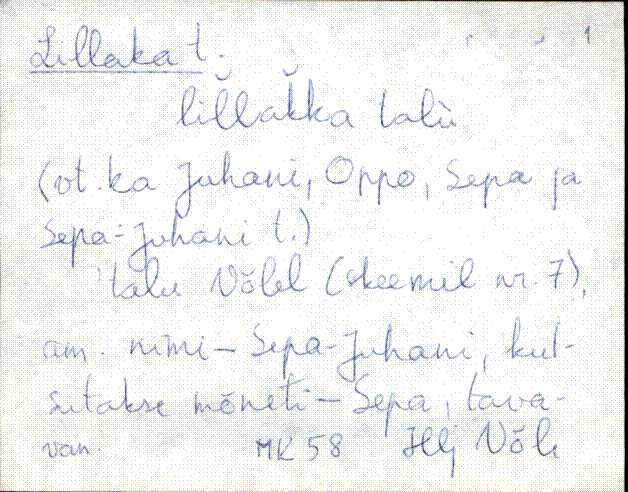 Lillaka t. 1
lil̆lak̆ka talu
(vt. ka Juhani, Oppo, Sepa ja
Sepa-Juhani t.)
talu Võlel (skeemil nr. 7),
am. nimi - Sepa-Juhani, kut-
sutakse mõneti - Sepa, tava-
van. MK 58 Hlj Võle